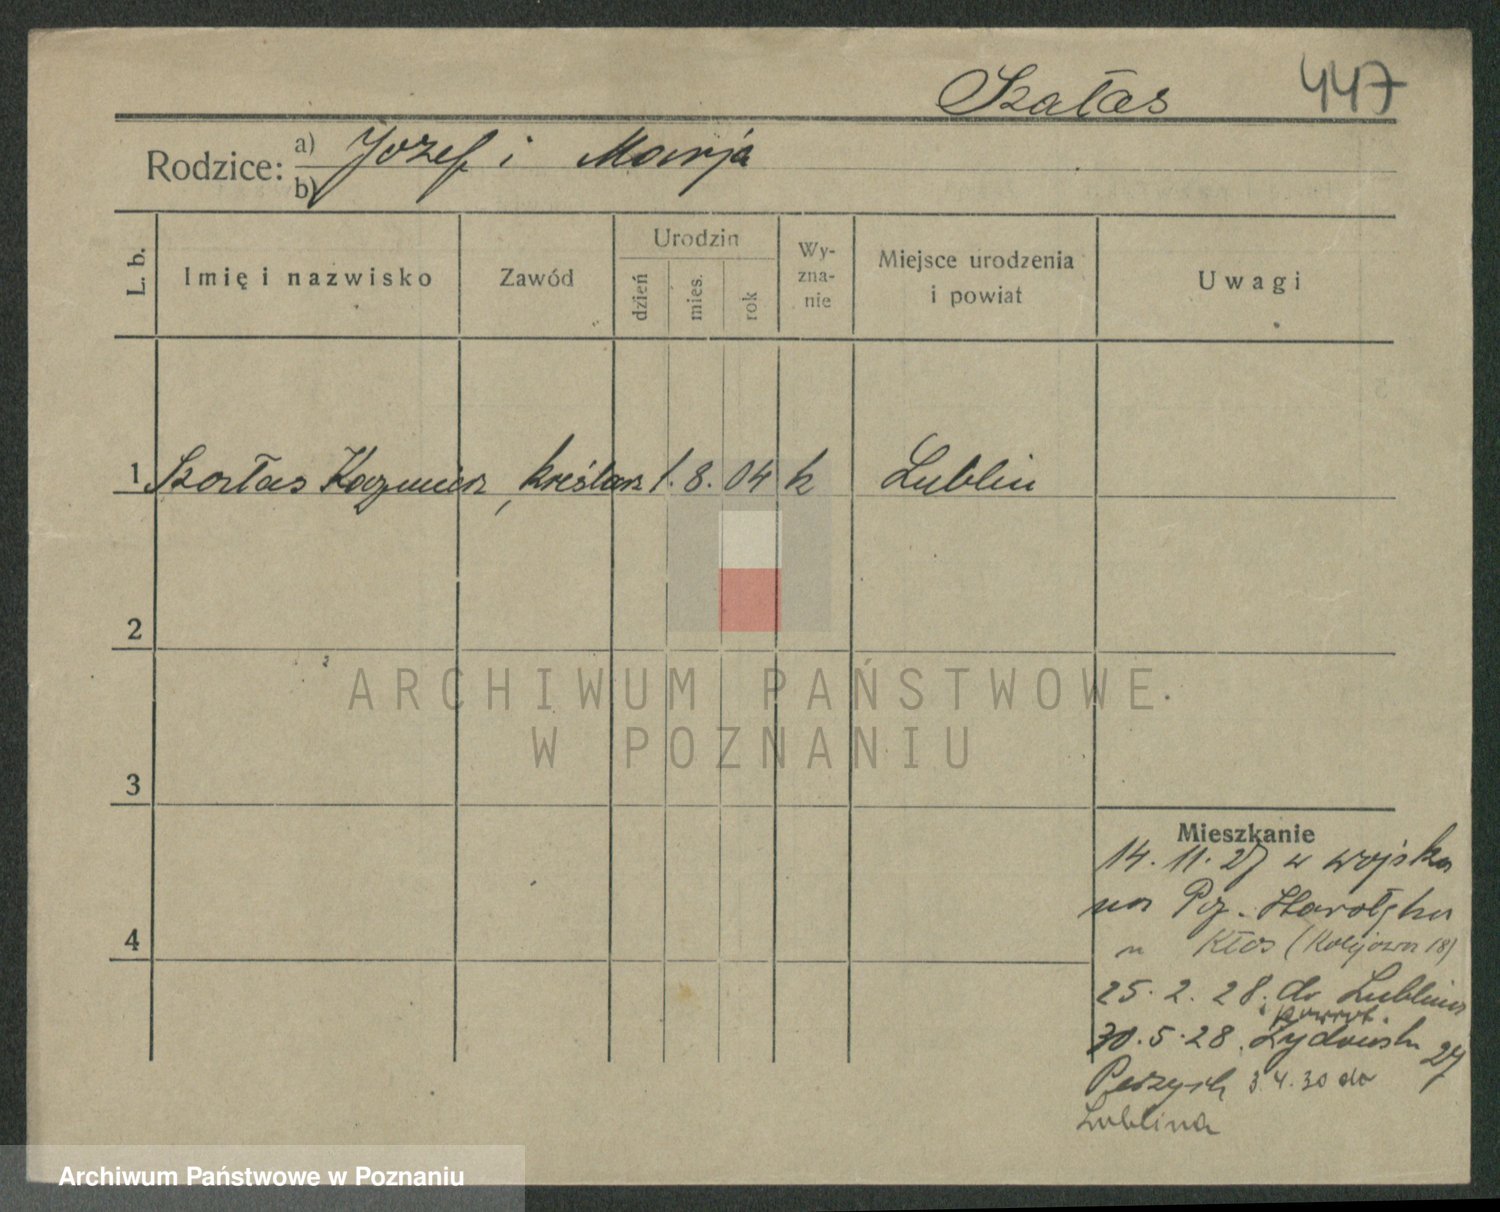 Szałas 447
Rodzice: a) Józef i Marja
b)
L. b. Imię i nazwisko Zawód Urodzin dzień mies. rok Wy-zna-nie Miejsce urodzenia i powiat Uwagi
1 Szałas Kazmierz, kreślarz 1. 8. 04 k Lublin
2
3
4
Mieszkanie
14. 11. 27 w wojska
na Pg.
u Kłos (Kolejowa 18)
25. 2. 28. do Lublina
powrot.
30. 5. 28. Żydowska 27
3.4.30 do
Lublina
ARCHIWUM PAŃSTWOWE
W POZNANIU
Archiwum Państwowe w Poznaniu